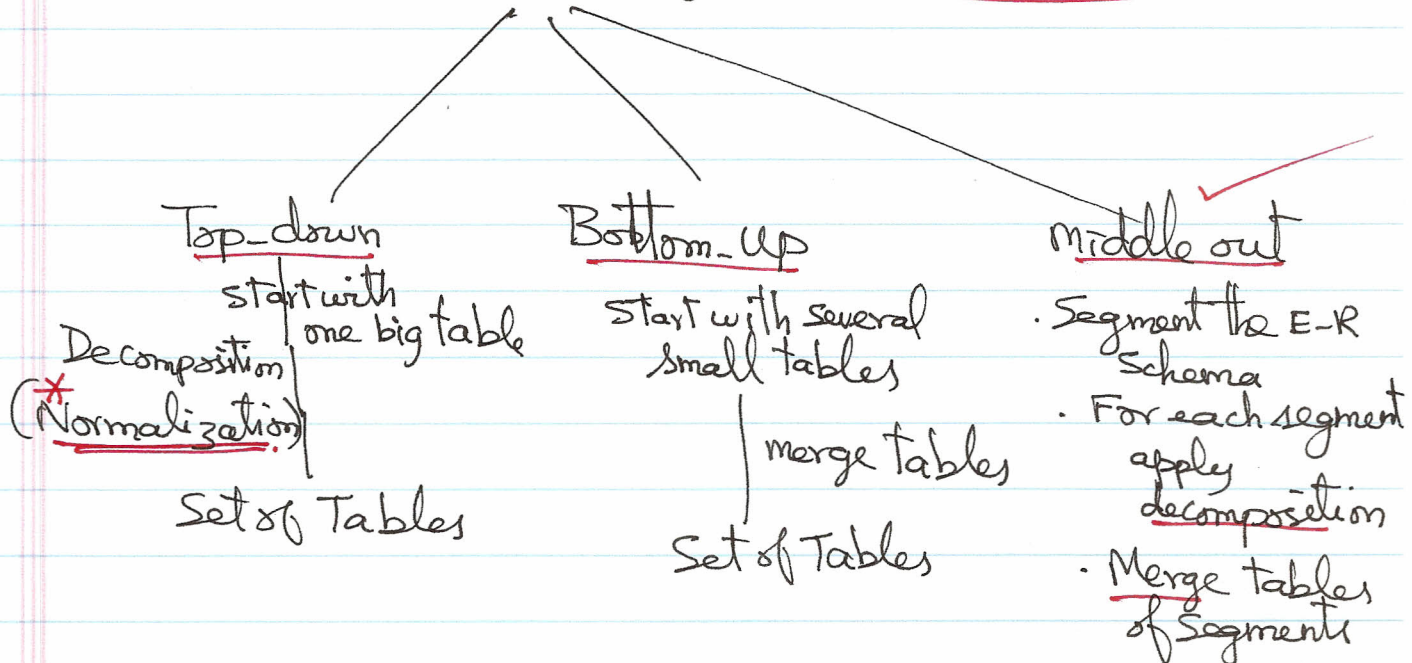 Top-down
start with
one big table
Decomposition
(*Normalization)
Set of Tables
Bottom-Up
Start with several
small tables
merge tables
Set of Tables
middle out
· Segment the E-R
Schema
· For each segment
apply
decomposition
· Merge tables
of Segments